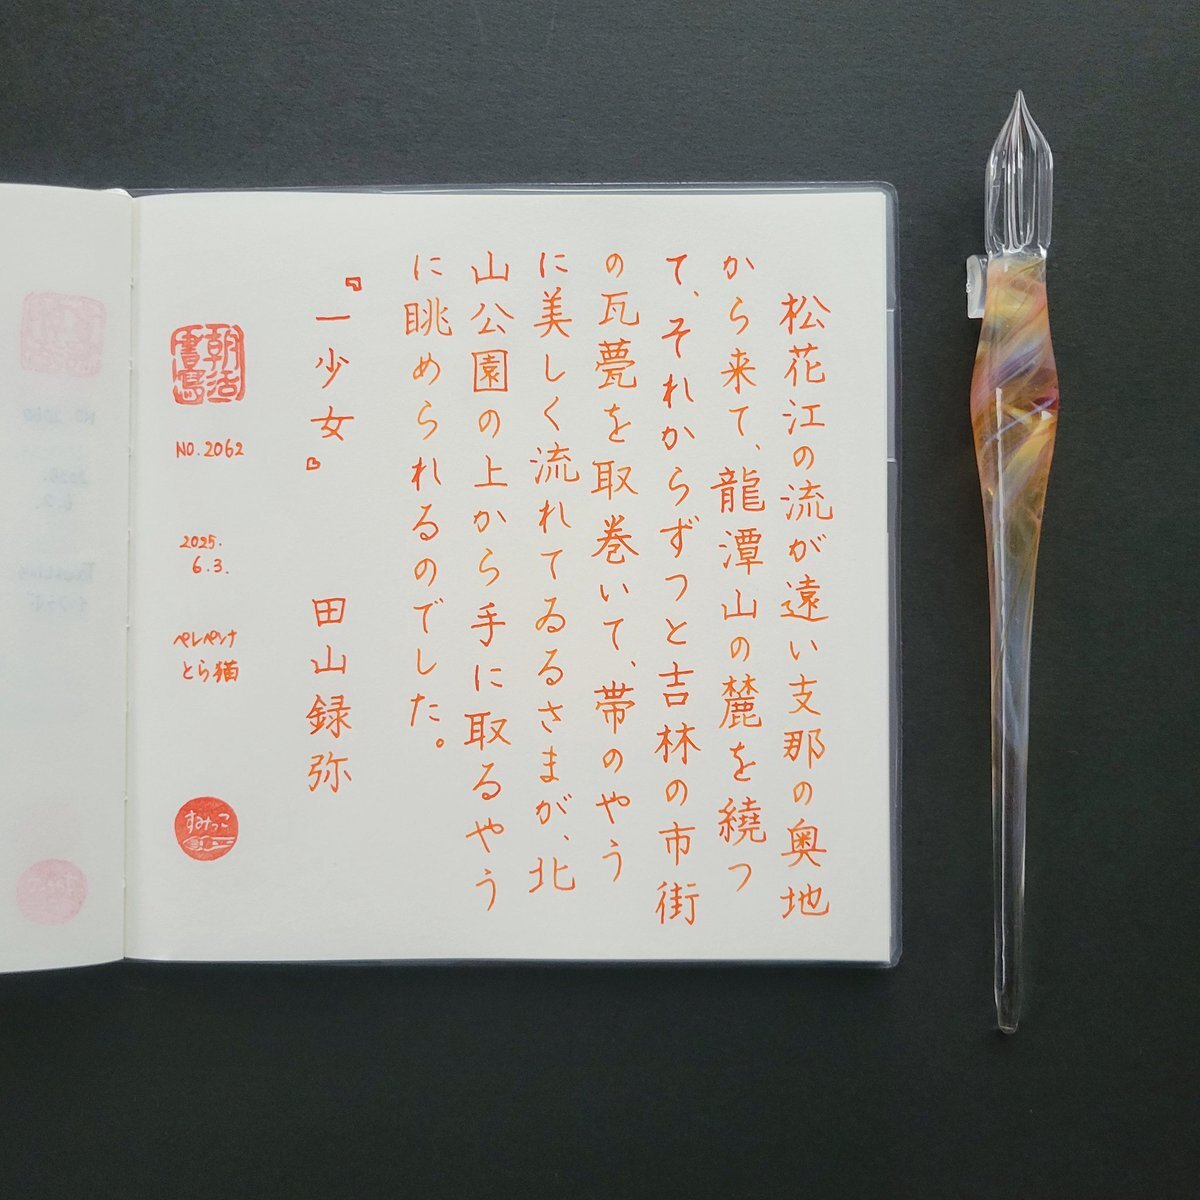 松花江の流が遠い支那の奥地
から来て、龍潭山の麓を繞つ
て、それからずつと吉林の市街
の瓦甍を取巻いて、帯のやう
に美しく流れてゐるさまが、北
山公園の上から手に取るやう
に眺められるのでした。
『一少女』
田山録弥
朝活書写
NO.2062
2025.
6.3.
ペレペンナ
とら猫
すみっこ